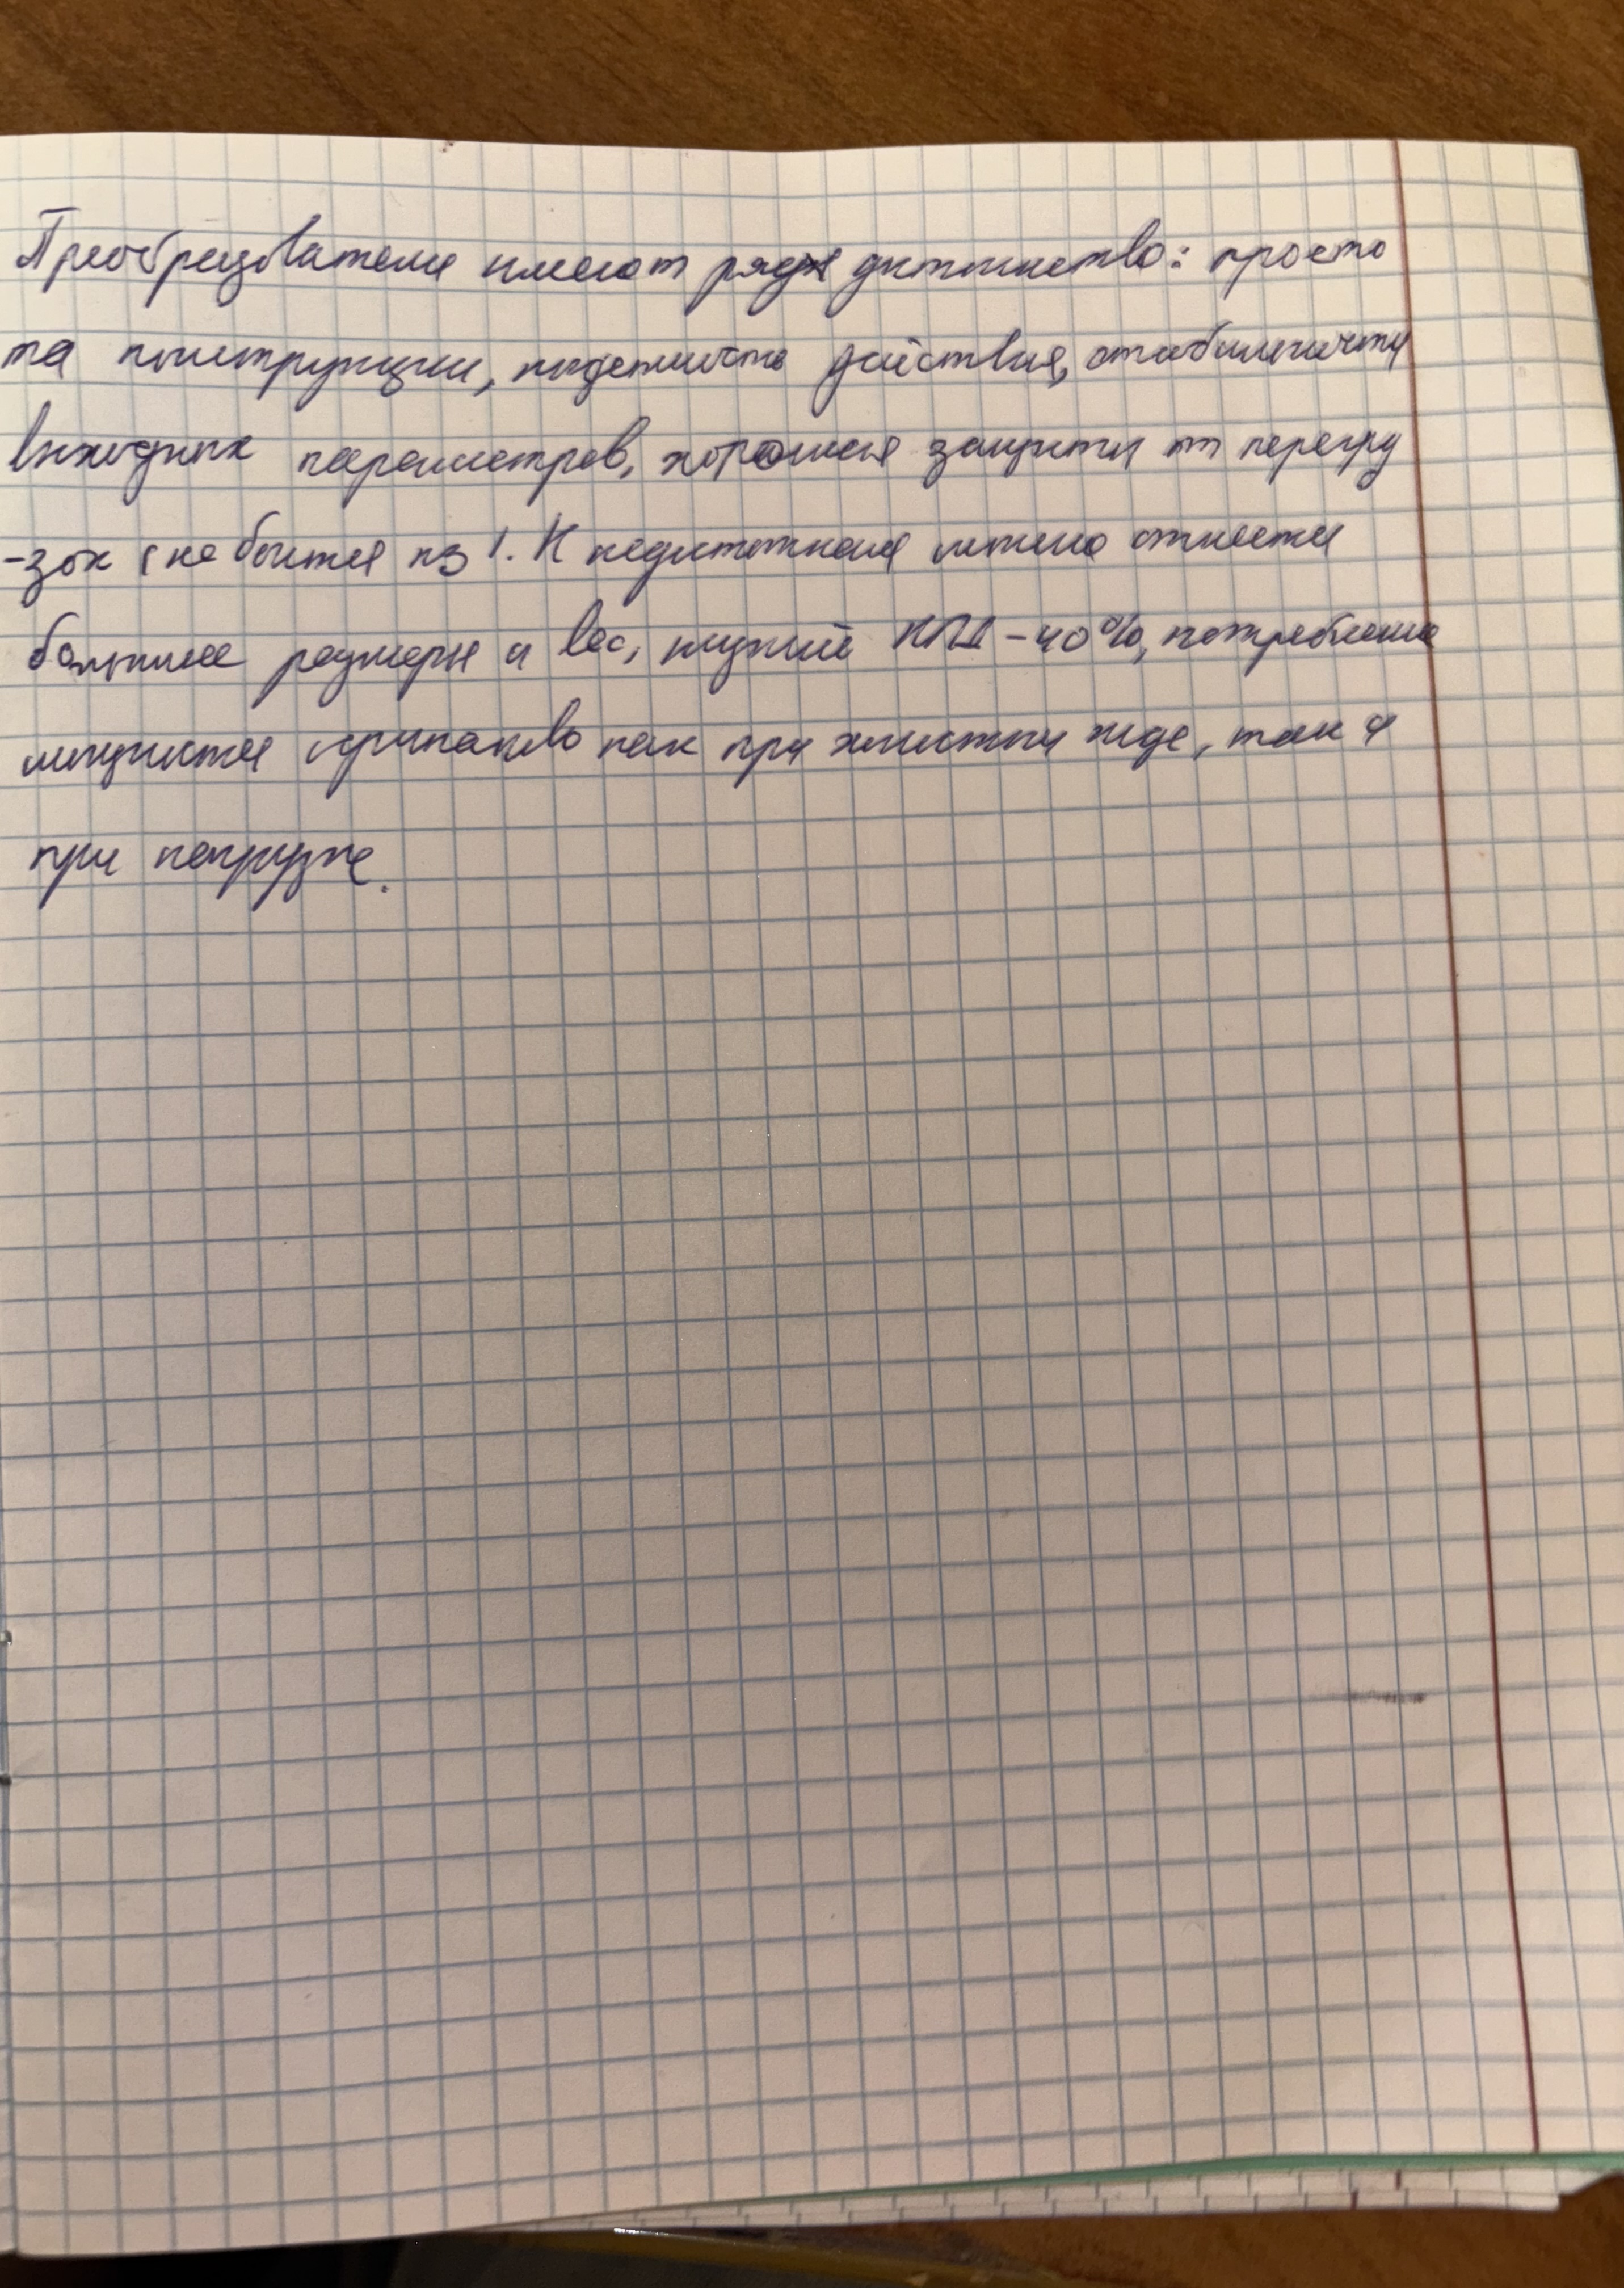 Преобразователи имеют ряд достоинство: просто
та конструкции, надежность действия, стабильность
выходных параметров, хорошая защита от перегру
-зок (не боится кз). К недостаткам можно отнести
большие размеры и вес, низкий КПД - 40%, потребление
мощности одинаково как при холостом ходе, так и
при нагрузке.